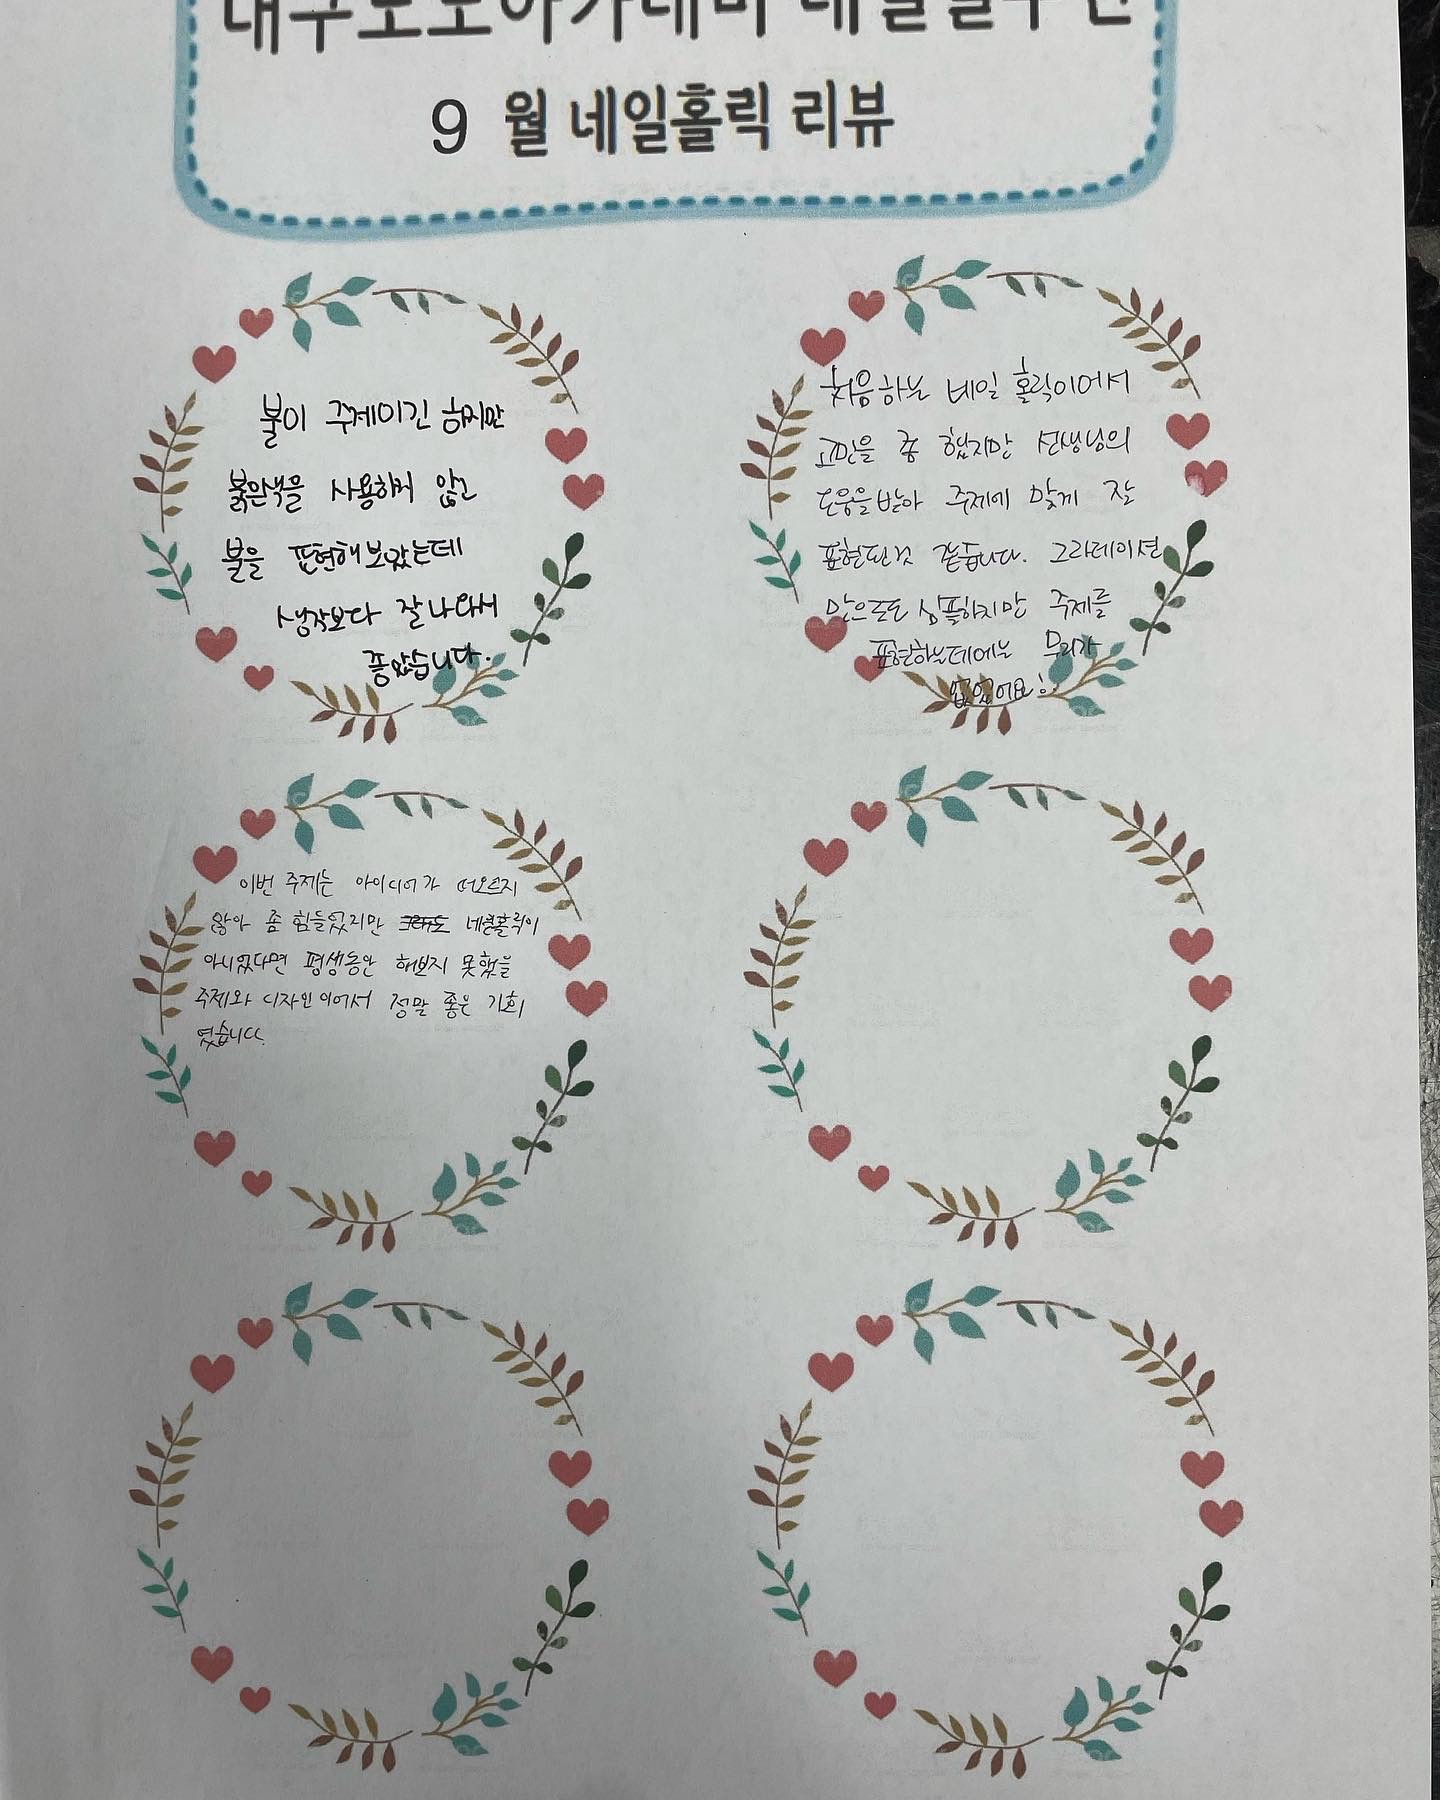 9 월 네일홀릭 리뷰
불이 주제이긴 하지만
붉은색을 사용하지 않고
불을 표현해보았는데
생각보다 잘나와서
좋았습니다.
처음하는 네일 홀릭이어서
고민을 좀 했지만 선생님의
도움을받아 주제에 맞게 잘
표현된것 같습니다. 그라데이션
만으로도 심플하지만 주제를
표현하는데에는 무리가
없었어요!
이번 주제는 아이디어가 떠오르지
않아 좀 힘들었지만 네일홀릭이
아니었다면 평생동안 해보지 못했을
주제와 디자인이어서 정말 좋은 기회
였습니다.